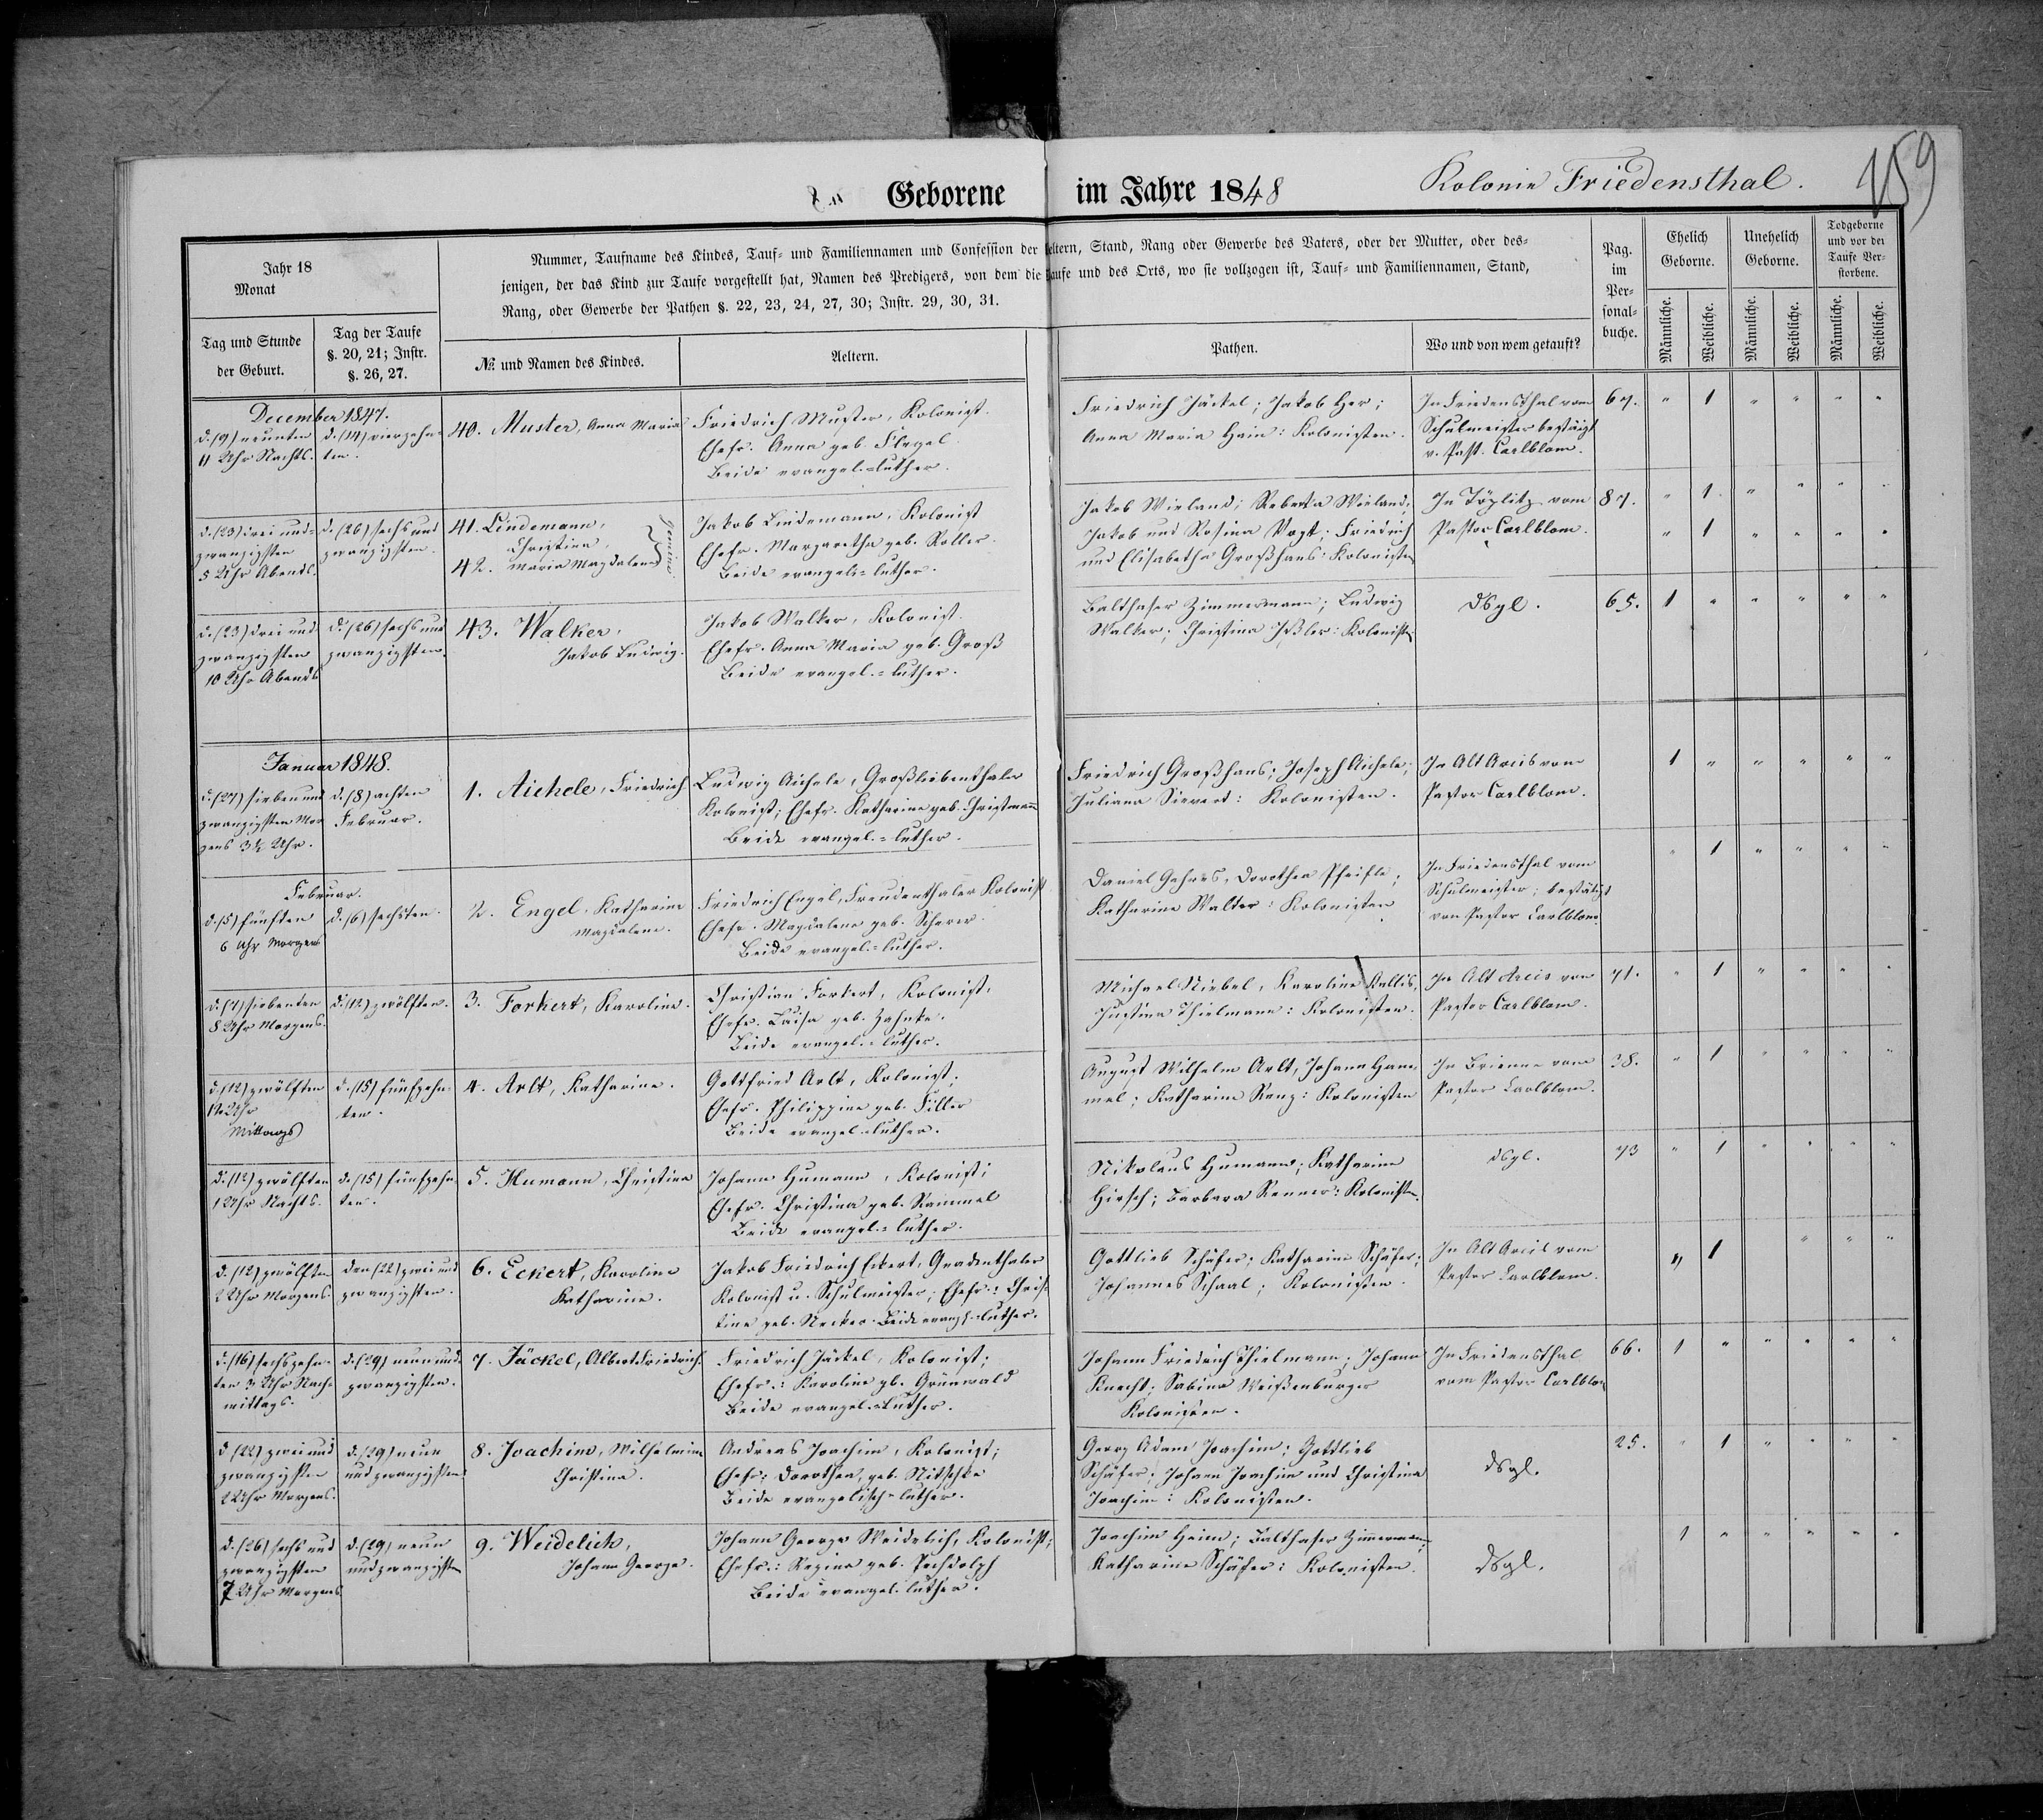 Geborene im Jahre 1848
Kolonie Friedensthal.
159
Jahr 18
Monat
Tag und Stunde
der Geburt.
Tag der Taufe
§. 20, 21; Instr.
§. 26, 27.
Nummer, Taufname des Kindes, Tauf- und Familiennamen und Confession der Aeltern, Stand, Rang oder Gewerbe des Vaters, oder der Mutter, oder des-
jenigen, der das Kind zur Taufe vorgestellt hat, Namen des Predigers, von dem die Taufe und des Orts, wo sie vollzogen ist, Tauf- und Familiennamen, Stand,
Rang, oder Gewerbe der Pathen §. 22, 23, 24, 27, 30; Instr. 29, 30, 31.
№ und Namen des Kindes.
Aeltern.
Pathen.
Wo und von wem getauft?
Pag.
im
Per-
sonal-
buche.
Ehelich
Geborne.
Unehelich
Geborne.
Todgeborne
und vor der
Taufe Ver-
storbene.
Männliche.
Weibliche.
Männliche.
Weibliche.
Männliche.
Weibliche.
December 1847.
d. (9) neunten
11 Uhr Nachts.
d. (14) vierzehn-
ten.
40. Muster, Anna Maria
Friedrich Muster, Kolonist.
Ehefr. Anna geb. Flegel.
Beide evangel.-luther.
Friedrich Jäckel; Jakob Her;
Anna Maria Hein: Kolonisten.
In Friedensthal vom
Schulmeister bestätigt
v. Past. Carlblom.
67. " 1 " " " "
d. (23) drei und-
zwanzigsten
5 Uhr Abends.
d. (26) sechs und
zwanzigsten.
41. Lindemann,
Christina,
42. Maria Magdalena
Gemini.
Jakob Lindemann, Kolonist
Ehefr. Margaretha geb. Roller.
Beide evangel.-luther.
Jakob Wieland; Rebekka Wieland;
Jakob und Rosina Vogt; Friedrich
und Elisabetha Großhans: Kolonisten
In Töplitz vom
Pastor Carlblom.
87. " 1 " " " "
" 1 " " " "
d. (23) drei und
zwanzigsten
10 Uhr Abends
d. (26) sechs und
zwanzigsten.
43. Walker,
Jakob Ludwig.
Jakob Walker, Kolonist.
Ehefr. Anna Maria geb. Groß
Beide evangel.-luther.
Balthaser Zimmermann; Ludwig
Walker; Christina Ißler: Kolonisten
dsgl.
65. 1 " " " " "
Januar 1848.
d. (27) sieben und
zwanzigsten Mor
gens 3½ Uhr.
d. (8) achten
Februar.
1. Aichele, Friedrich
Ludwig Aichele, Großliebenthaler
Kolonist; Ehefr. Katharina geb. Christmann
Beide evangel.-luther.
Friedrich Großhans; Joseph Aichele;
Juliana Sievert: Kolonisten.
In Alt Arcis vom
Pastor Carlblom.
1 " " " " "
Februar.
d. (5) fünften
6 Uhr Morgens
d. (6) sechsten.
2. Engel, Katharina
Magdalena.
Friedrich Engel, Freudenthaler Kolonist
Ehefr. Magdalena geb. Scherer.
Beide evangel.-luther.
Daniel Dorothea Pfeifle;
Katharina Walter: Kolonisten
In Friedensthal vom
Schulmeister; bestätigt
von Pastor Carlblom
" 1 " " " "
d. (7) siebenten
8 Uhr Morgens.
d. (12) zwölften.
3. Forkert, Karoline.
Christian Forkert, Kolonist,
Ehefr. Luisa geb. Jahnke.
Beide evangel.-luther.
Michael Niebel, Karoline Kallis,
Justina Thielmann: Kolonisten.
In Alt Arcis vom
Pastor Carlblom.
71. " 1 " " " "
d. (12) zwölften
12 Uhr
Mittags
d. (15) fünfzehn-
ten.
4. Arlt, Katharine.
Gottfried Arlt, Kolonist;
Ehefr. Philippine geb. Filler
Beide evangel.-luther.
August Wilhelm Arlt, Johann Ham-
mel; Katharina Renz: Kolonisten
In Brienne vom
Pastor Carlblom.
38. " 1 " " " "
d. (12) zwölften
1 Uhr Nachts.
d. (15) fünfzehn-
ten.
5. Humann, Christina
Johann Humann, Kolonist;
Ehefr. Christina geb. Rammel
Beide evangel.-luther.
Nikolaus Humann; Katharina
Hirsch; Barbara Renner: Kolonisten.
dsgl.
73 " 1 " " " "
d. (12) zwölften
2 Uhr Morgens.
den (22) zwei und
zwanzigsten.
6. Eckert, Karoline
Katharina.
Jakob Friedrich Eckert, Gnadenthaler
Kolonist u. Schulmeister; Ehefr.: Chris-
tina geb. Necker. Beide evangl.-luther.
Gottlieb Schäfer; Katharina Schäfer;
Johannes Schaal; Kolonisten.
In Alt Arcis vom
Pastor Carlblom.
" 1 " " "
d. (16) sechszehn-
ten 3 Uhr Nach-
mittags.
d. (29) neun und
zwanzigsten.
7. Jäckel, Albert Friedrich.
Friedrich Jäckel, Kolonist;
Ehefr.: Karolina gb. Grünwald
Beide evangel.-luther.
Johann Friedrich Thielmann; Johann
Knecht; Sabina Weißenburger
Kolonisten.
In Friedensthal
vom Pastor Carlblom
66. 1 " " " " "
d. (22) zwei und
zwanzigsten
2 Uhr Morgens.
d. (29) neun
und zwanzigsten
8. Joachim, Wilhelmina
Christina.
Andreas Joachim, Kolonist;
Ehefr: Dorothea, geb. Nitschke
Beide evangelisch-luther.
Georg Adam Joachim; Gottlieb
Schäfer; Johann Joachim und Christina
Joachim: Kolonisten.
dsgl.
25. " 1 " " " "
d. (26) sechs und
zwanzigsten
7 Uhr Morgens
d. (29) neun
und zwanzigsten
9. Weidelich,
Johann George.
Johann George Weidelich, Kolonist;
Ehefr.: Regina geb. Pochdolph
Beide evangel. luther.
Joachim Heim; Balthaser Zimmermann;
Katharina Schäfer: Kolonisten.
dsgl.
1 " " " " "